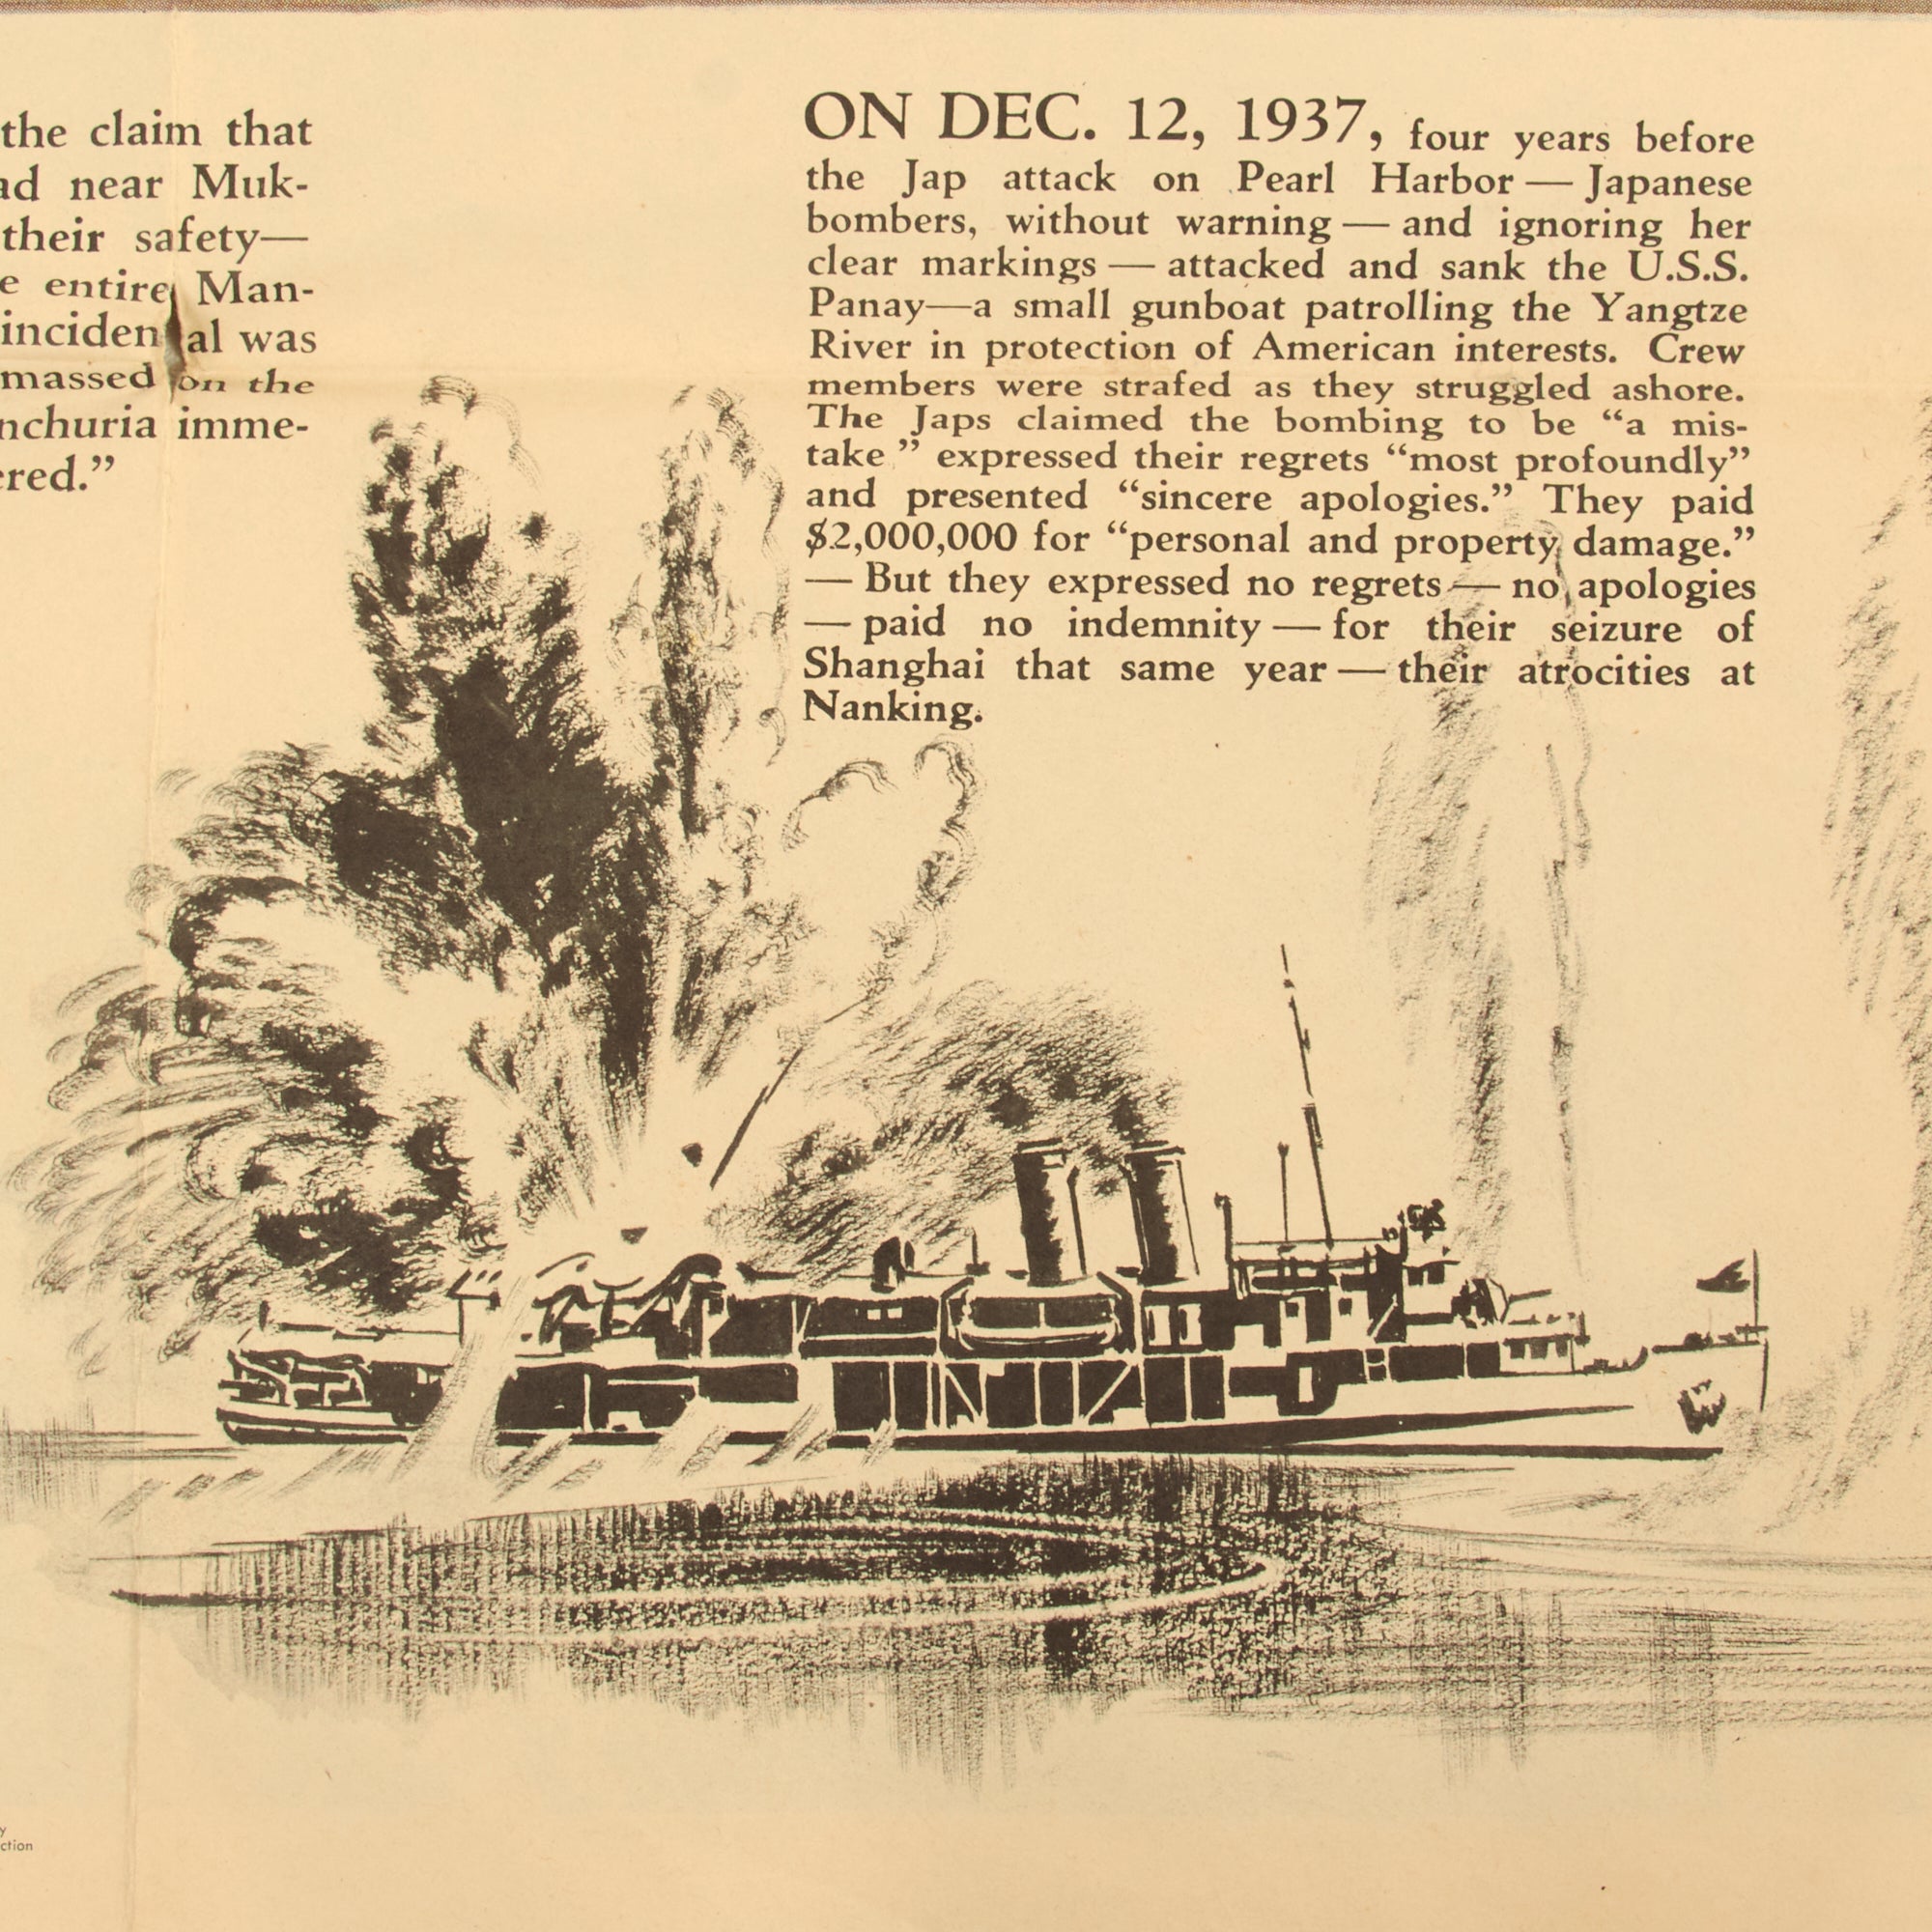 the claim that
near Muk-
their safety—
entire Man-
was
massed on the
imme-
ON DEC. 12, 1937, four years before
the Jap attack on Pearl Harbor — Japanese
bombers, without warning — and ignoring her
clear markings — attacked and sank the U.S.S.
Panay—a small gunboat patrolling the Yangtze
River in protection of American interests. Crew
members were strafed as they struggled ashore.
The Japs claimed the bombing to be “a mis-
take ” expressed their regrets “most profoundly”
and presented “sincere apologies.” They paid
$2,000,000 for “personal and property damage.”
— But they expressed no regrets — no apologies
— paid no indemnity — for their seizure of
Shanghai that same year — their atrocities at
Nanking.